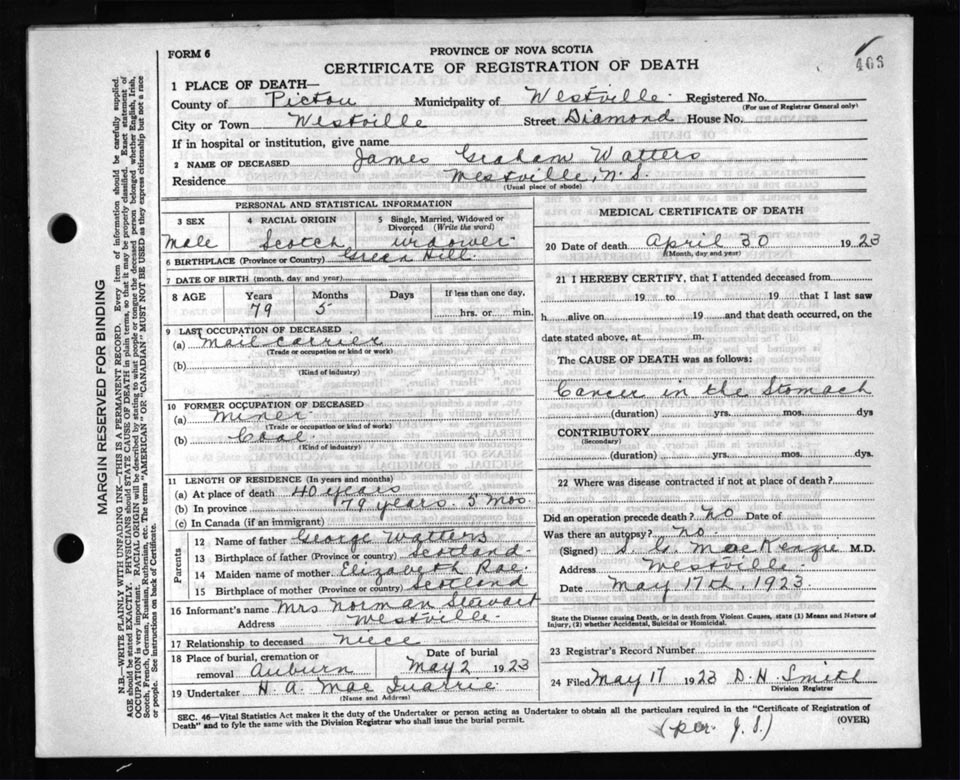 FORM 6
PROVINCE OF NOVA SCOTIA
CERTIFICATE OF REGISTRATION OF DEATH
403
1 PLACE OF DEATH—
County of Pictou Municipality of Westville Registered No.
(For use of Registrar General only)
City or Town Westville Street Diamond House No.
If in hospital or institution, give name
2 NAME OF DECEASED James Graham Watters
Residence Westville, N.S.
(Usual place of abode)
PERSONAL AND STATISTICAL INFORMATION
3 SEX 4 RACIAL ORIGIN 5 Single, Married, Widowed or Divorced (Write the word)
Male Scotch widower
6 BIRTHPLACE (Province or Country) Green Hill
7 DATE OF BIRTH (month, day and year)
8 AGE Years Months Days If less than one day,
79 5 hrs. or min.
9 LAST OCCUPATION OF DECEASED
(a) Mail carrier
(Trade or occupation or kind or work)
(b)
(Kind of industry)
10 FORMER OCCUPATION OF DECEASED
(a) Miner
(Trade or occupation or kind of work)
(b) Coal
(Kind of industry)
11 LENGTH OF RESIDENCE (In years and months)
(a) At place of death 40 years
(b) In province 79 years. 5 Mos.
(c) In Canada (if an immigrant)
Parents
12 Name of father George Watters
13 Birthplace of father (Province or country) Scotland
14 Maiden name of mother Elizabeth Rae
15 Birthplace of mother (Province or country) Scotland
16 Informant's name Mrs Norman Stewart
Address Westville
17 Relationship to deceased niece
18 Place of burial, cremation or removal Auburn Date of burial May 2 1923
19 Undertaker H. A. Mac Quarrie
(Name and Address)
MEDICAL CERTIFICATE OF DEATH
20 Date of death April 30 1923
(Month, day and year)
21 I HEREBY CERTIFY, that I attended deceased from
19 to 19 that I last saw
h alive on 19 and that death occurred, on the
date stated above, at m.
The CAUSE OF DEATH was as follows:
Cancer in the Stomach
(duration) yrs. mos. dys
CONTRIBUTORY
(Secondary)
(duration) yrs. mos. dys.
22 Where was disease contracted if not at place of death?
Did an operation precede death? No Date of
Was there an autopsy? No.
(Signed) S. G. MacKenzie M.D.
Address Westville
Date May 17th, 1923
State the Disease causing Death, or in death from Violent Causes, state (1) Means and Nature of
Injury, (2) whether Accidental, Suicidal or Homicidal.
23 Registrar's Record Number
24 Filed May 17 1923 D. H. Smith
Division Registrar
SEC. 46—Vital Statistics Act makes it the duty of the Undertaker or person acting as Undertaker to obtain all the particulars required in the "Certificate of Registration of
Death" and to fyle the same with the Division Registrar who shall issue the burial permit.
(OVER)
(per J. S.)
MARGIN RESERVED FOR BINDING
N.B.—WRITE PLAINLY WITH UNFADING INK—THIS IS A PERMANENT RECORD. Every item of information should be carefully supplied.
AGE should be stated EXACTLY. PHYSICIANS should STATE CAUSE OF DEATH in plain terms, so that it may be properly classified. Exact statement of
OCCUPATION is very important. RACIAL ORIGIN will be described by stating to what people or tongue the deceased person belonged whether English, Irish,
Scotch, French, German, Russian, Ruthenian, etc. The terms "AMERICAN" OR "CANADIAN" MUST NOT BE USED as they express citizenship but not a race
or people. See instructions on back of Certificate.